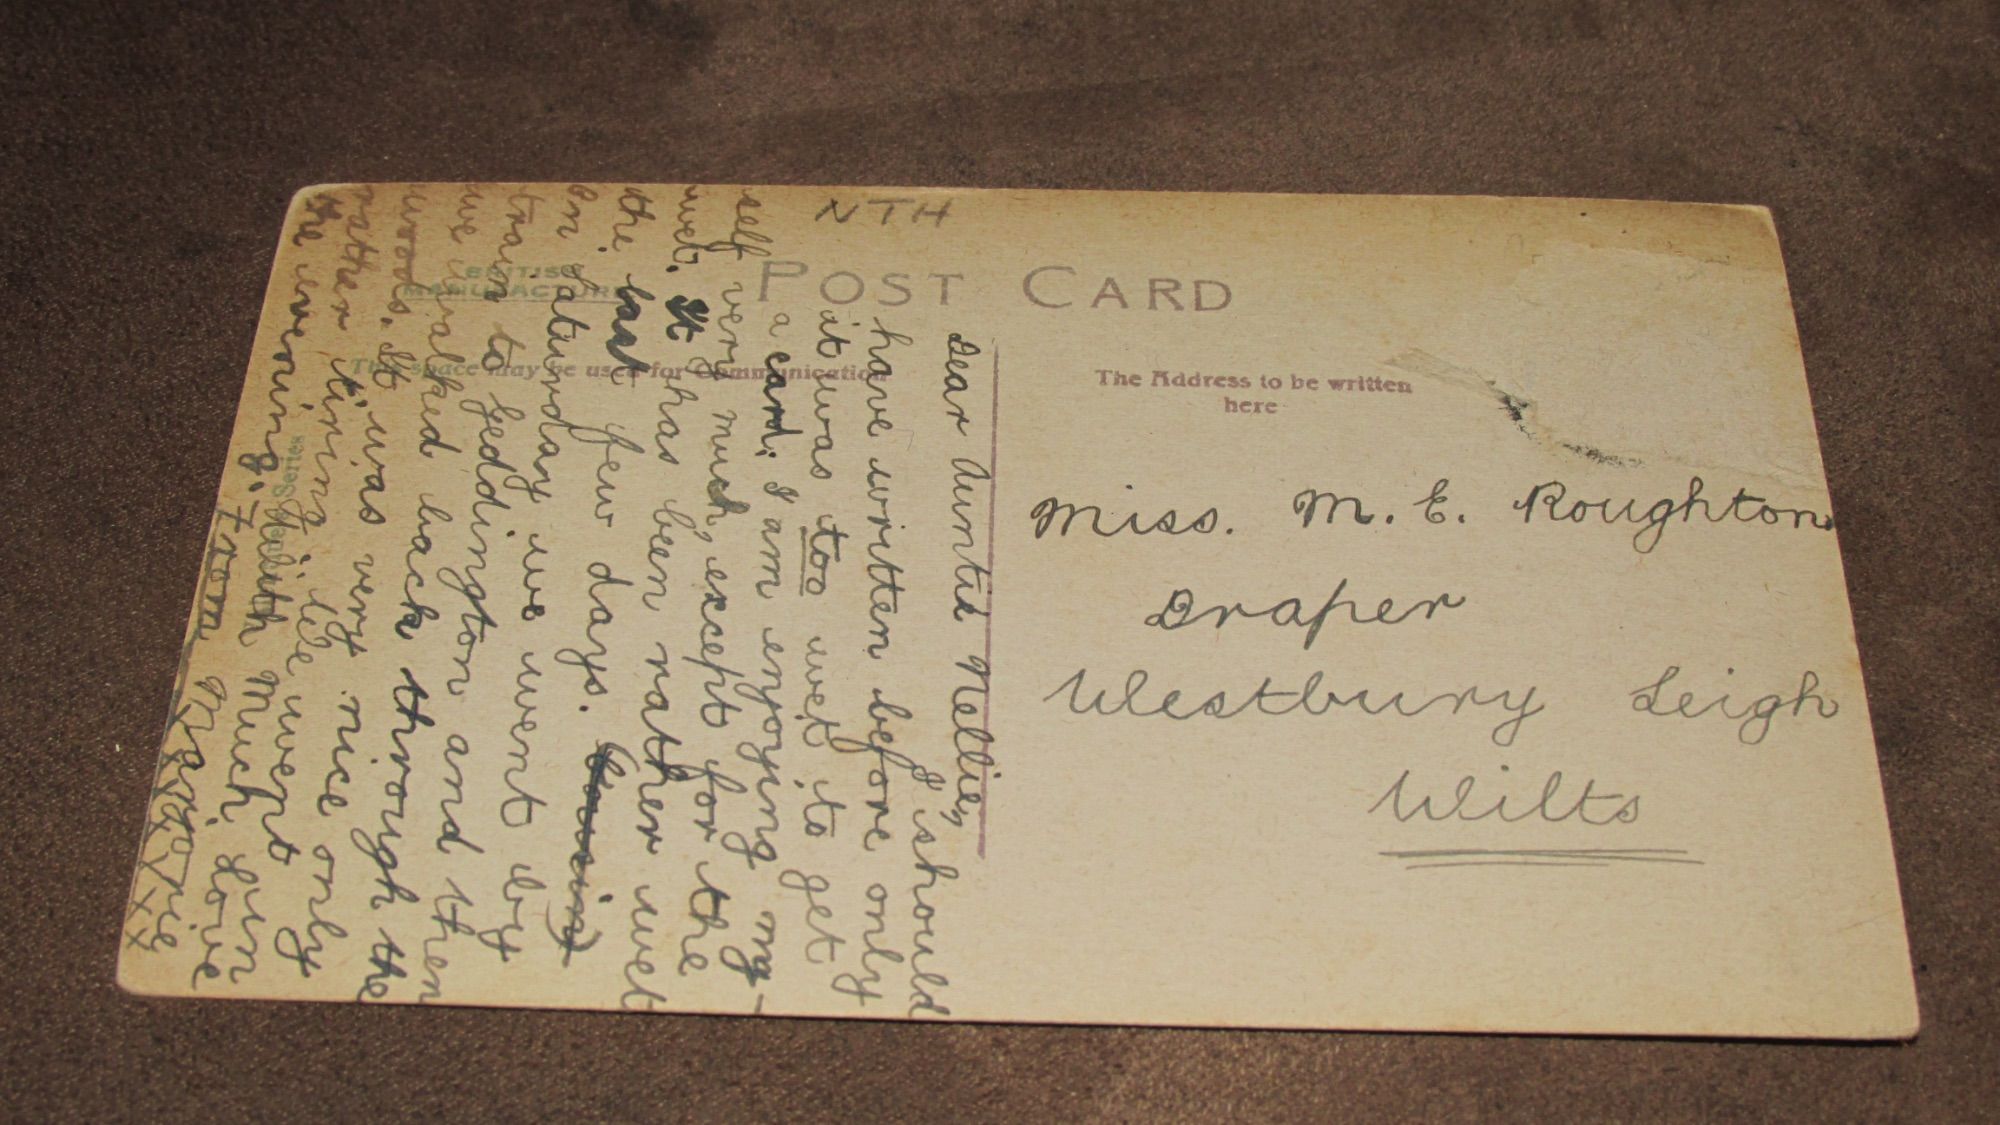 NTH
POST CARD
BRITISH
MANUFACTURE
This space may be used for Communication
The Address to be written
here
Series
Dear Auntie Nellie,
I should
have written before only
it was too wet to get
a card. I am enjoying my-
self very much, except for the
wet. It has been rather wet
the last few days.
On Saturday we went by
train to Geddington and then
we walked back through the
woods. It was very nice only
rather tiring. We
the evening. With Much Love
from Margorie
xxxxxx
Miss. M. E. Roughton
Draper
Westbury Leigh
Wilts